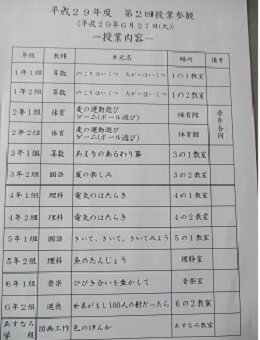 平成29年度 第2回授業参観
(平成29年6月27日(火))
－授業内容－
年組 教科 単元名 場所 備考
1年1組 算数 のこりはいくつ ちがいはいくつ 1の1教室
1年2組 算数 のこりはいくつ ちがいはいくつ 1の2教室
2年1組 体育 の運動遊び ゲーム(ボール遊び) 体育館 学年合同
2年2組 体育 の運動遊び ゲーム(ボール遊び) 体育館
3年1組 算数 あまりのあるわり算 3の1教室
3年2組 国語 夏の楽しみ 3の2教室
4年1組 理科 電気のはたらき 4の1教室
4年2組 理科 電気のはたらき 4の2教室
5年1組 国語 きいて、きいて、きいてみよう 5の1教室
5年2組 理科 魚のたんじょう 理科室
6年1組 音楽 ひびき合いを生かして 音楽室
6年2組 道徳 世界がもし100人の村だったら 6の2教室
あすなろ学級 図画工作 色のはんが あすなろ教室